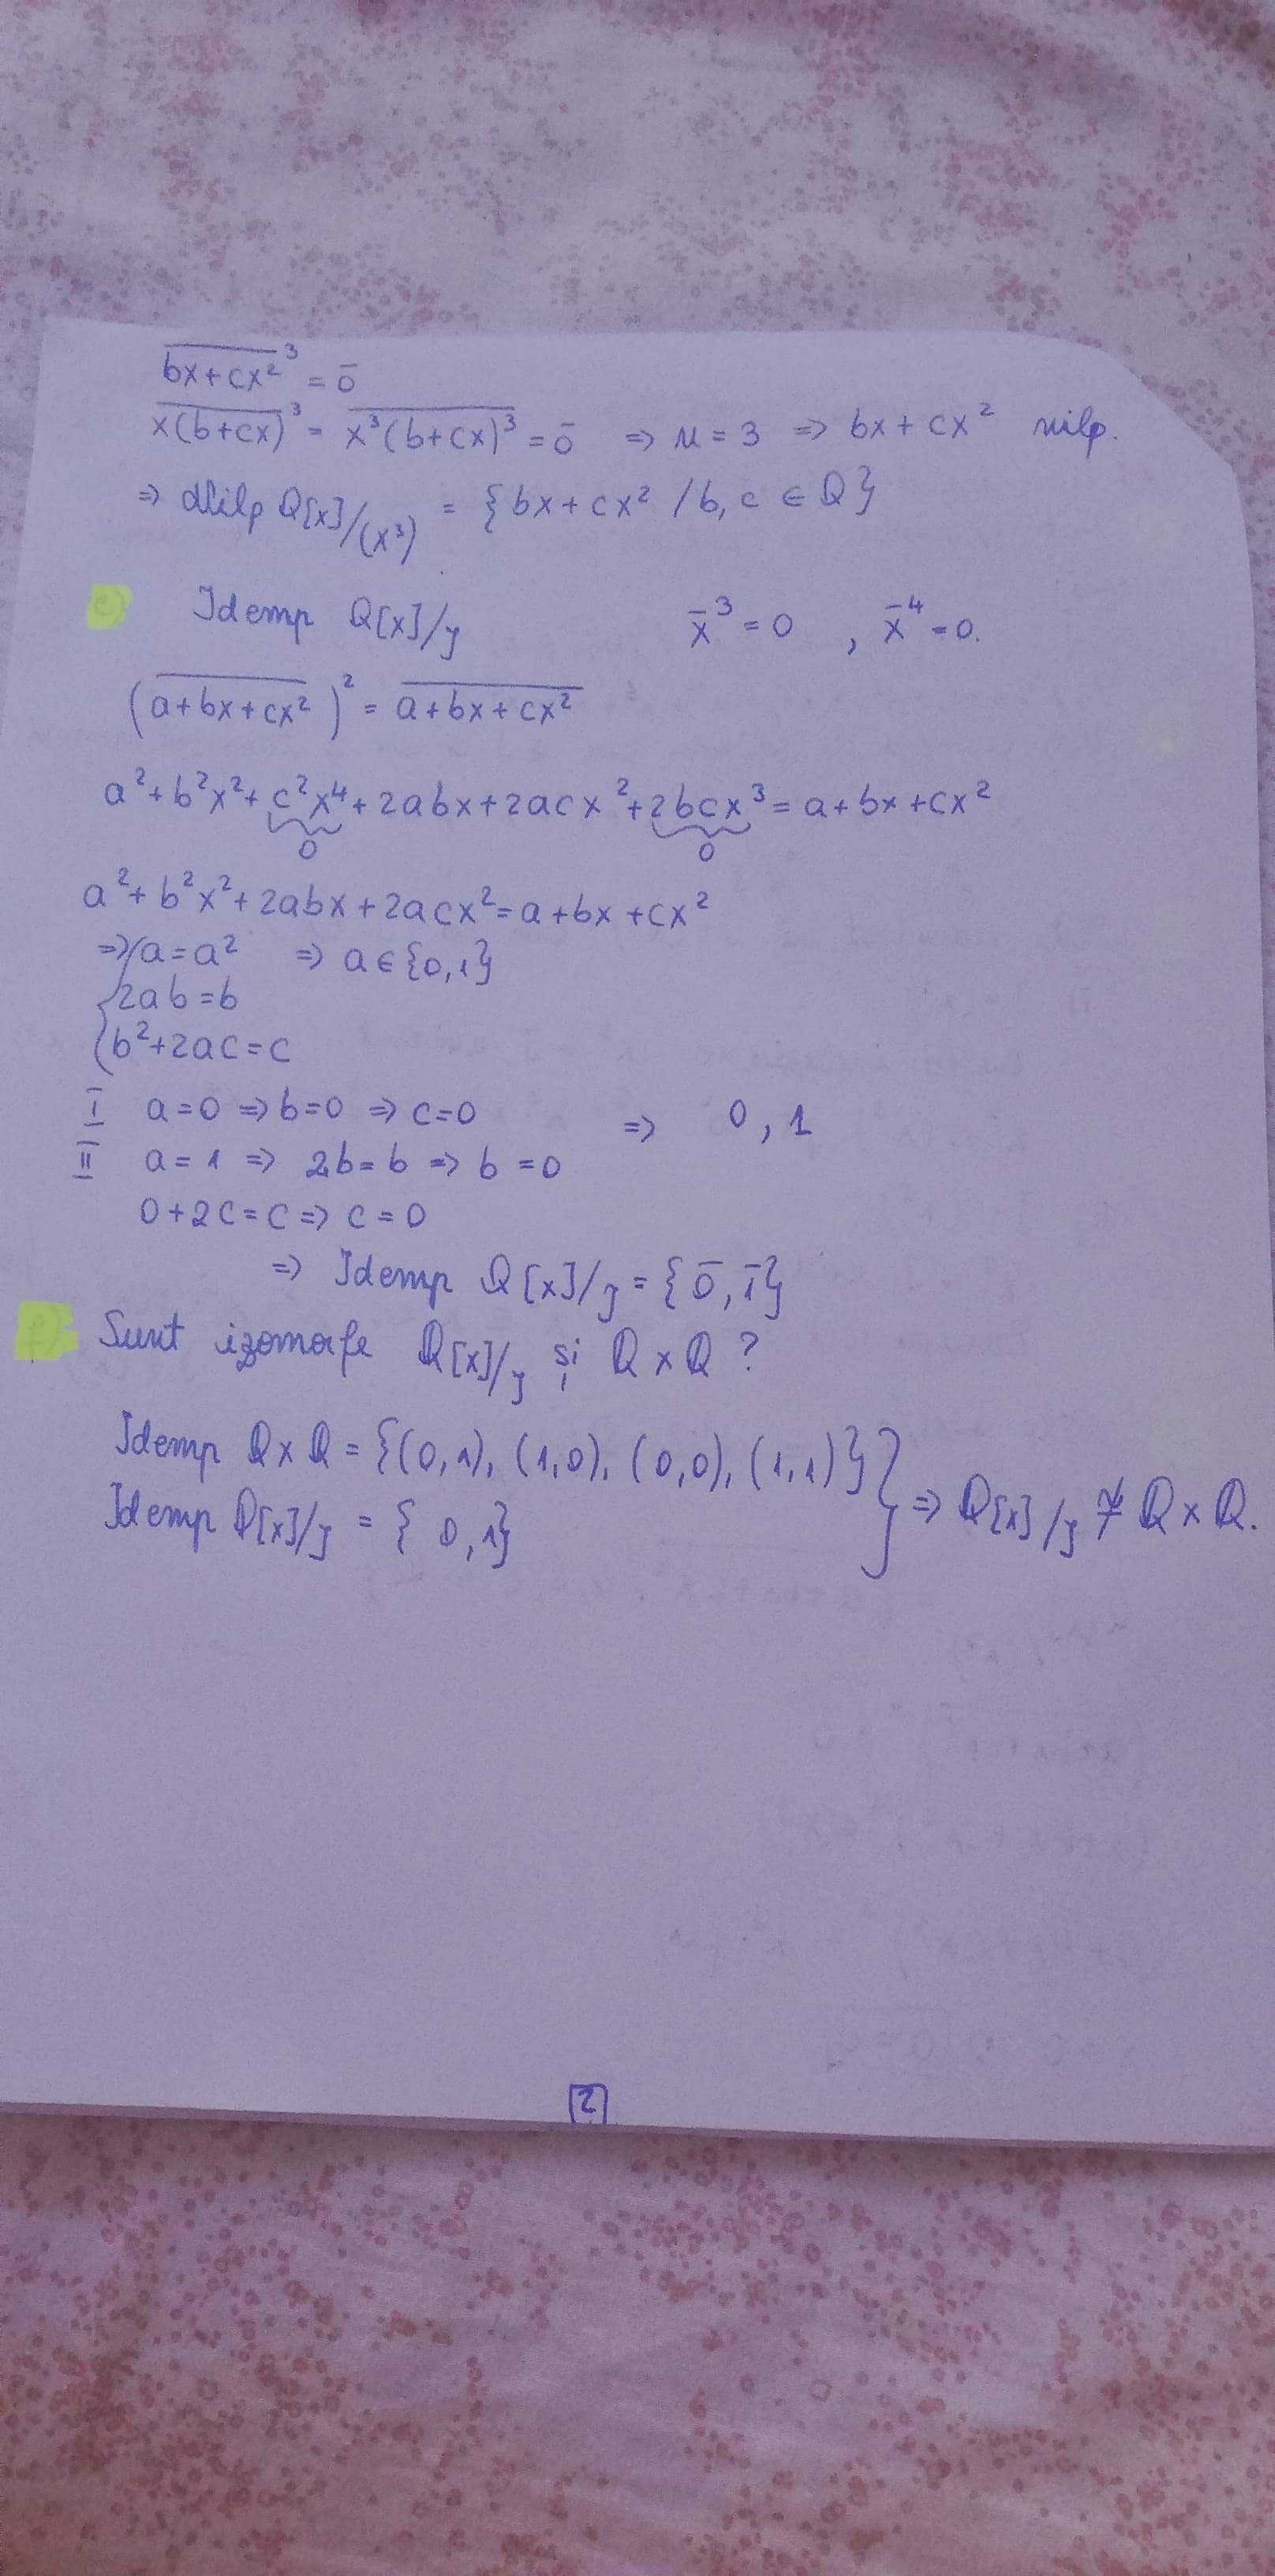 \overline{bx+cx²}³ = \bar{0}
\overline{x(b+cx)}³ = \overline{x³(b+cx)³} = \bar{0} => n = 3 => bx + cx² nilp.
=> Nilp Q[x]/(x³) = {bx + cx² / b, c ∈ Q}
e) Idemp Q[x]/J \bar{x}³ = 0 , \bar{x}⁴ = 0.
(\overline{a+bx+cx²})² = \overline{a+bx+cx²}
a²+b²x²+c²x⁴+2abx+2acx²+2bcx³ = a+bx+cx²
0 0
a²+b²x²+2abx+2acx² = a+bx+cx²
=> { a = a² => a ∈ {0,1}
2ab = b
b²+2ac = c
I a=0 => b=0 => c=0 => 0, 1
II a=1 => 2b=b => b=0
0+2c=c => c=0
=> Idemp Q[x]/J = {\bar{0}, \bar{1}}
f) Sunt izomorfe Q[x]/J și Q×Q ?
Idemp Q×Q = {(0,1), (1,0), (0,0), (1,1)} } => Q[x]/J ≄ Q×Q.
Idemp Q[x]/J = {0,1}
2